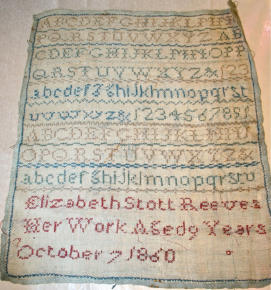 ABCDEFGHIJKLMN
PQRSTUVWXYZ AB
CDEFGHIJKLMNOPP
QRSTUVWXYZ&123
abcdefghijklmnopqrst
uvwxyz&1234567891
ABCDEFGHIJKLMN
OPQRSTUVWXYZ&
abcdefghijklmnopqrstu
Elizabeth Stott Reeves
Her Work Aged 9 Years
October 7 1860